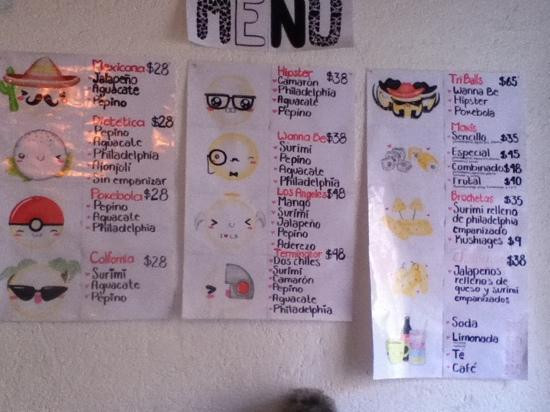 MENU
Mexicana $28
Jalapeño
Aguacate
Pepino
Dietetica $28
Pepino
Aguacate
Philadelphia
Ajonjoli
Sin empanizar
Pokebola $28
Pepino
Aguacate
Philadelphia
$28
Surimi
Aguacate
Pepino
Hipster $38
Camarón
Philadelphia
Aguacate
Pepino
Wanna Be $38
Surimi
Pepino
Aguacate
Philadelphia
Los Angeles $48
Mango
Surimi
Jalapeño
Pepino
Aderezo
I ♥ LA
$48
Dos chiles
Surimi
Camarón
Pepino
Aguacate
Philadelphia
Tri Balls $65
Wanna Be
Hipster
Pokebola
Sencillo $35
Especial $45
Combinado $48
Frutal $40
Brochetas $35
Surimi relleno
de philadelphia
empanizado
Kushiages $9
$38
Jalapeños
rellenos de
queso y surimi
empanizados
Soda
Limonada
Te
Café